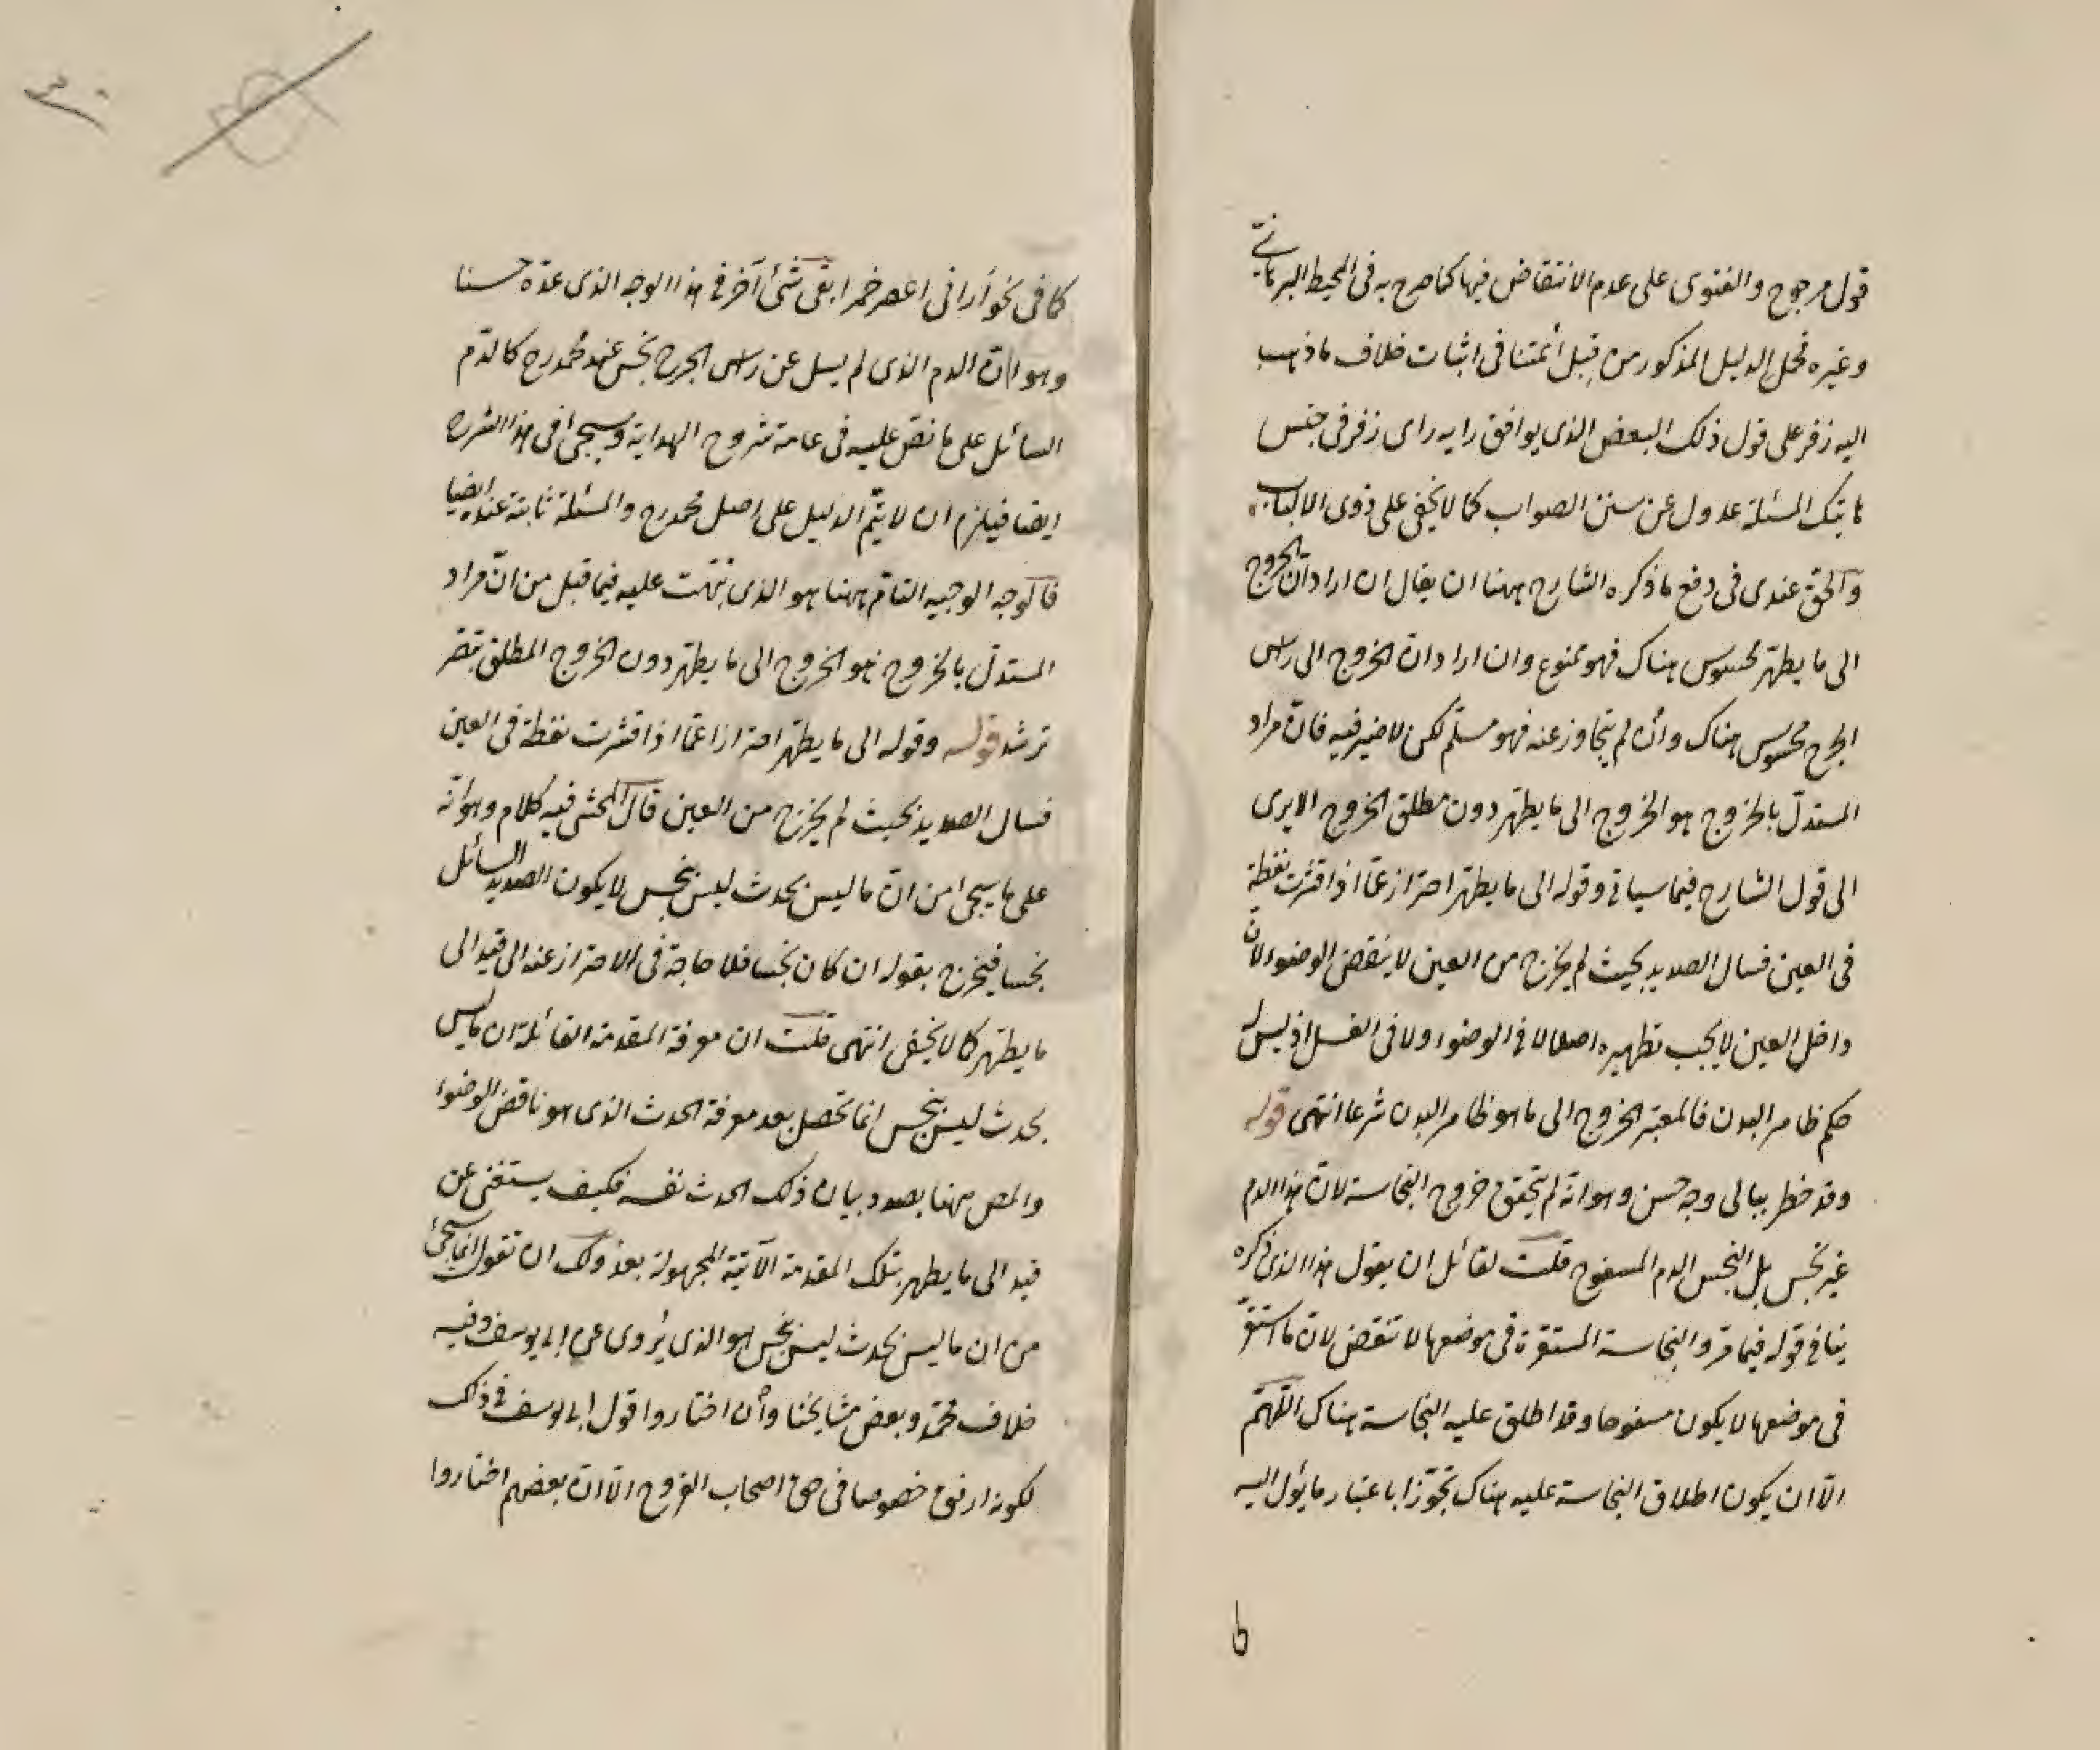 قول مرجوح والفتوى على عدم الانتقاض فيها كما صرح به فى المحيط البرهانى
وغيره فحمل الدليل المذكور من قبل أئمتنا فى اثبات خلاف ما ذهب
اليه زفر على قول ذلك البعض الذى يوافق رايه راى زفر فى جنس
هاتيك المسئلة عدول عن سنن الصواب كما لا يخفى على ذوى الالباب
والحق عندى فى دفع ما ذكره الشارح ههنا ان يقال ان اراد ان الخروج
الى ما يطهر محسوس هناك فهو ممنوع وان اراد ان الخروج الى راس
الجرح محسوس هناك وأن لم يتجاوز عنه فهو مسلّم لكن لا ضير فيه فانّ مراد
المستدلّ بالخروج هو الخروج الى ما يطهر دون مطلق الخروج الا يرى
الى قول الشارح فيما سياتى وقوله الى ما يطهر احتراز عمّا اذا قشرت نفطة
فى العين فسال الصديد بحيث لم يخرج من العين لا ينقض الوضوء لانّ
داخل العين لا يجب تطهيره اصلا لا فى الوضوء ولا فى الغسل اذ ليس له
حكم ظاهر البدن فالمعتبر الخروج الى ما هو ظاهر البدن شرعا انتهى قوله
وقد خطر ببالى وجه حسن وهو انّه لم يتحقق خروج النجاسة لانّ هذا الدم
غير نجس بل النجس الدم المسفوح قلت لقائل ان يقول هذا الذى ذكره
ينافى قوله فيما مرّ والنجاسة المستقرة فى موضعها لا تنقض لانّ ما استقرّ
فى موضعها لا يكون مسفوحا وقد اطلق عليه النجاسة هناك اللّهمّ
الّا ان يكون اطلاق النجاسة عليه هناك تجوّزا باعتبار ما يئول اليه
ط
٣٠
كما فى نحو أرانى اعصر خمرا بقى شئ آخر فى هذا الوجه الذى عدّه حسنا
وهو انّ الدم الذى لم يسل عن راس الجرح نجس عند محمد رح كالدّم
السائل على ما نصّ عليه فى عامة شروح الهداية وسيجئ فى هذا الشرح
ايضا فيلزم ان لا يتمّ الدليل على اصل محمد رح والمسئلة ثابتة عنده ايضا
فالوجه الوجيه التامّ ههنا هو الذى نبّهت عليه فيما قبل من انّ مراد
المستدلّ بالخروج هو الخروج الى ما يطهر دون الخروج المطلق تبصّر
ترشد قوله وقوله الى ما يطهر احترازا عمّا اذا قشرت نفطة فى العين
فسال الصديد بحيث لم يخرج من العين قال المحشى فيه كلام وهو انّه
على ما سيجئ من انّ ما ليس بحدث ليس بنجس لا يكون الصديد السائل
نجسا فيخرج بقوله ان كان نجسا فلا حاجة فى الاحتراز عنه الى قيد الى
ما يطهر كما لا يخفى انتهى قلت ان معرفة المقدمة القائلة ان ما ليس
بحدث ليس بنجس انما تحصل بعد معرفة الحدث الذى هو ناقض الوضوء
والمص ههنا بصدد بيان ذلك الحدث نفسه فكيف يستغنى عن
قيد الى ما يطهر بتلك المقدمة الآتية المجهولة بعد ولك ان تقول انما سيجئ
من ان ما ليس بحدث ليس بنجس هو الذى يُروى عن ابى يوسف وفيه
خلاف محمّد وبعض مشايخنا وأن اختاروا قول ابى يوسف فى ذلك
لكونه ارفق خصوصا فى حق اصحاب القروح الّا انّ بعضهم اختاروا